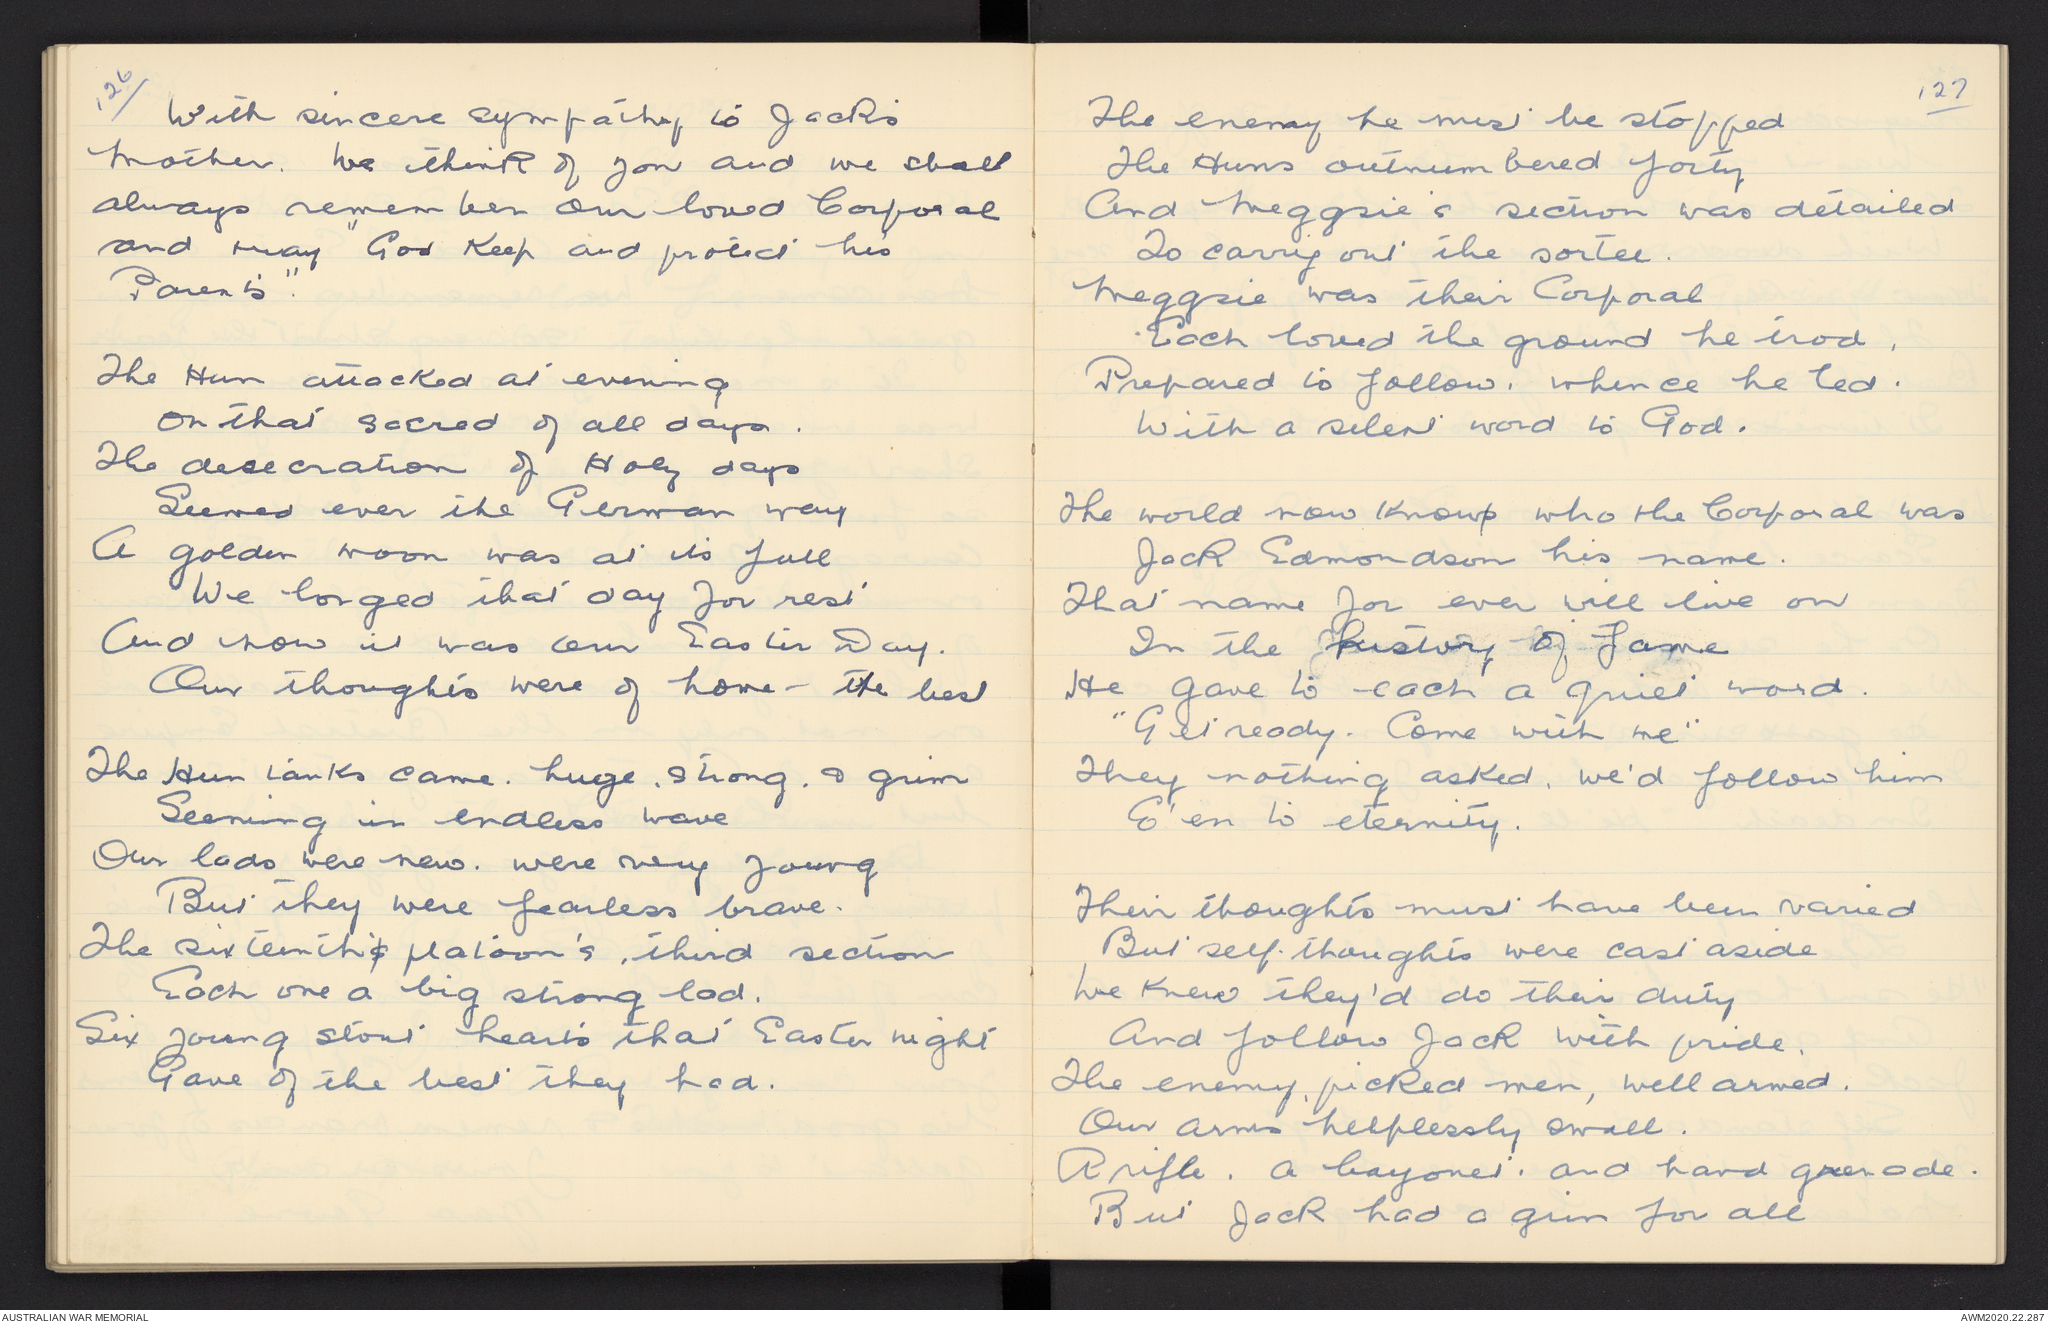 126/
With sincere sympathy to Jack's
Mother. We think of you and we shall
always remember our loved Corporal
and may "God Keep and protect his
Parents".
The Hun attacked at evening
on that sacred of all days.
The desecration of Holy days
Seemed ever the German way
A golden moon was at its full
We longed that day for rest
And now it was our Easter Day.
Our thoughts were of home - the best
The Hun tanks came. huge, strong, & grim
Seeming in endless wave
Our lads were new. were very young
But they were fearless brave.
The sixteenth platoon's, third section
Each one a big strong lad.
Six young stout hearts that Easter night
Gave of the best they had.
127
The enemy he must be stopped
The Huns outnumbered forty
And Meggsie's section was detailed
To carry out the sortee.
Meggsie was their Corporal
Each loved the ground he trod,
Prepared to follow. whence he led.
With a silent word to God.
The world now knows who the Corporal was
Jack Edmondson his name.
That name for ever will live on
In the history of Fame
He gave to each a quiet word.
"Get ready. Come with me"
They nothing asked. we'd follow him
E'en to eternity.
Their thoughts must have been varied
But self-thoughts were cast aside
We knew they'd do their duty
And follow Jack with pride.
The enemy, picked men, well armed.
Our arms helplessly small.
A rifle. a bayonet. and hand grenade.
But Jack had a grin for all
AUSTRALIAN WAR MEMORIAL
AWM2020.22.287